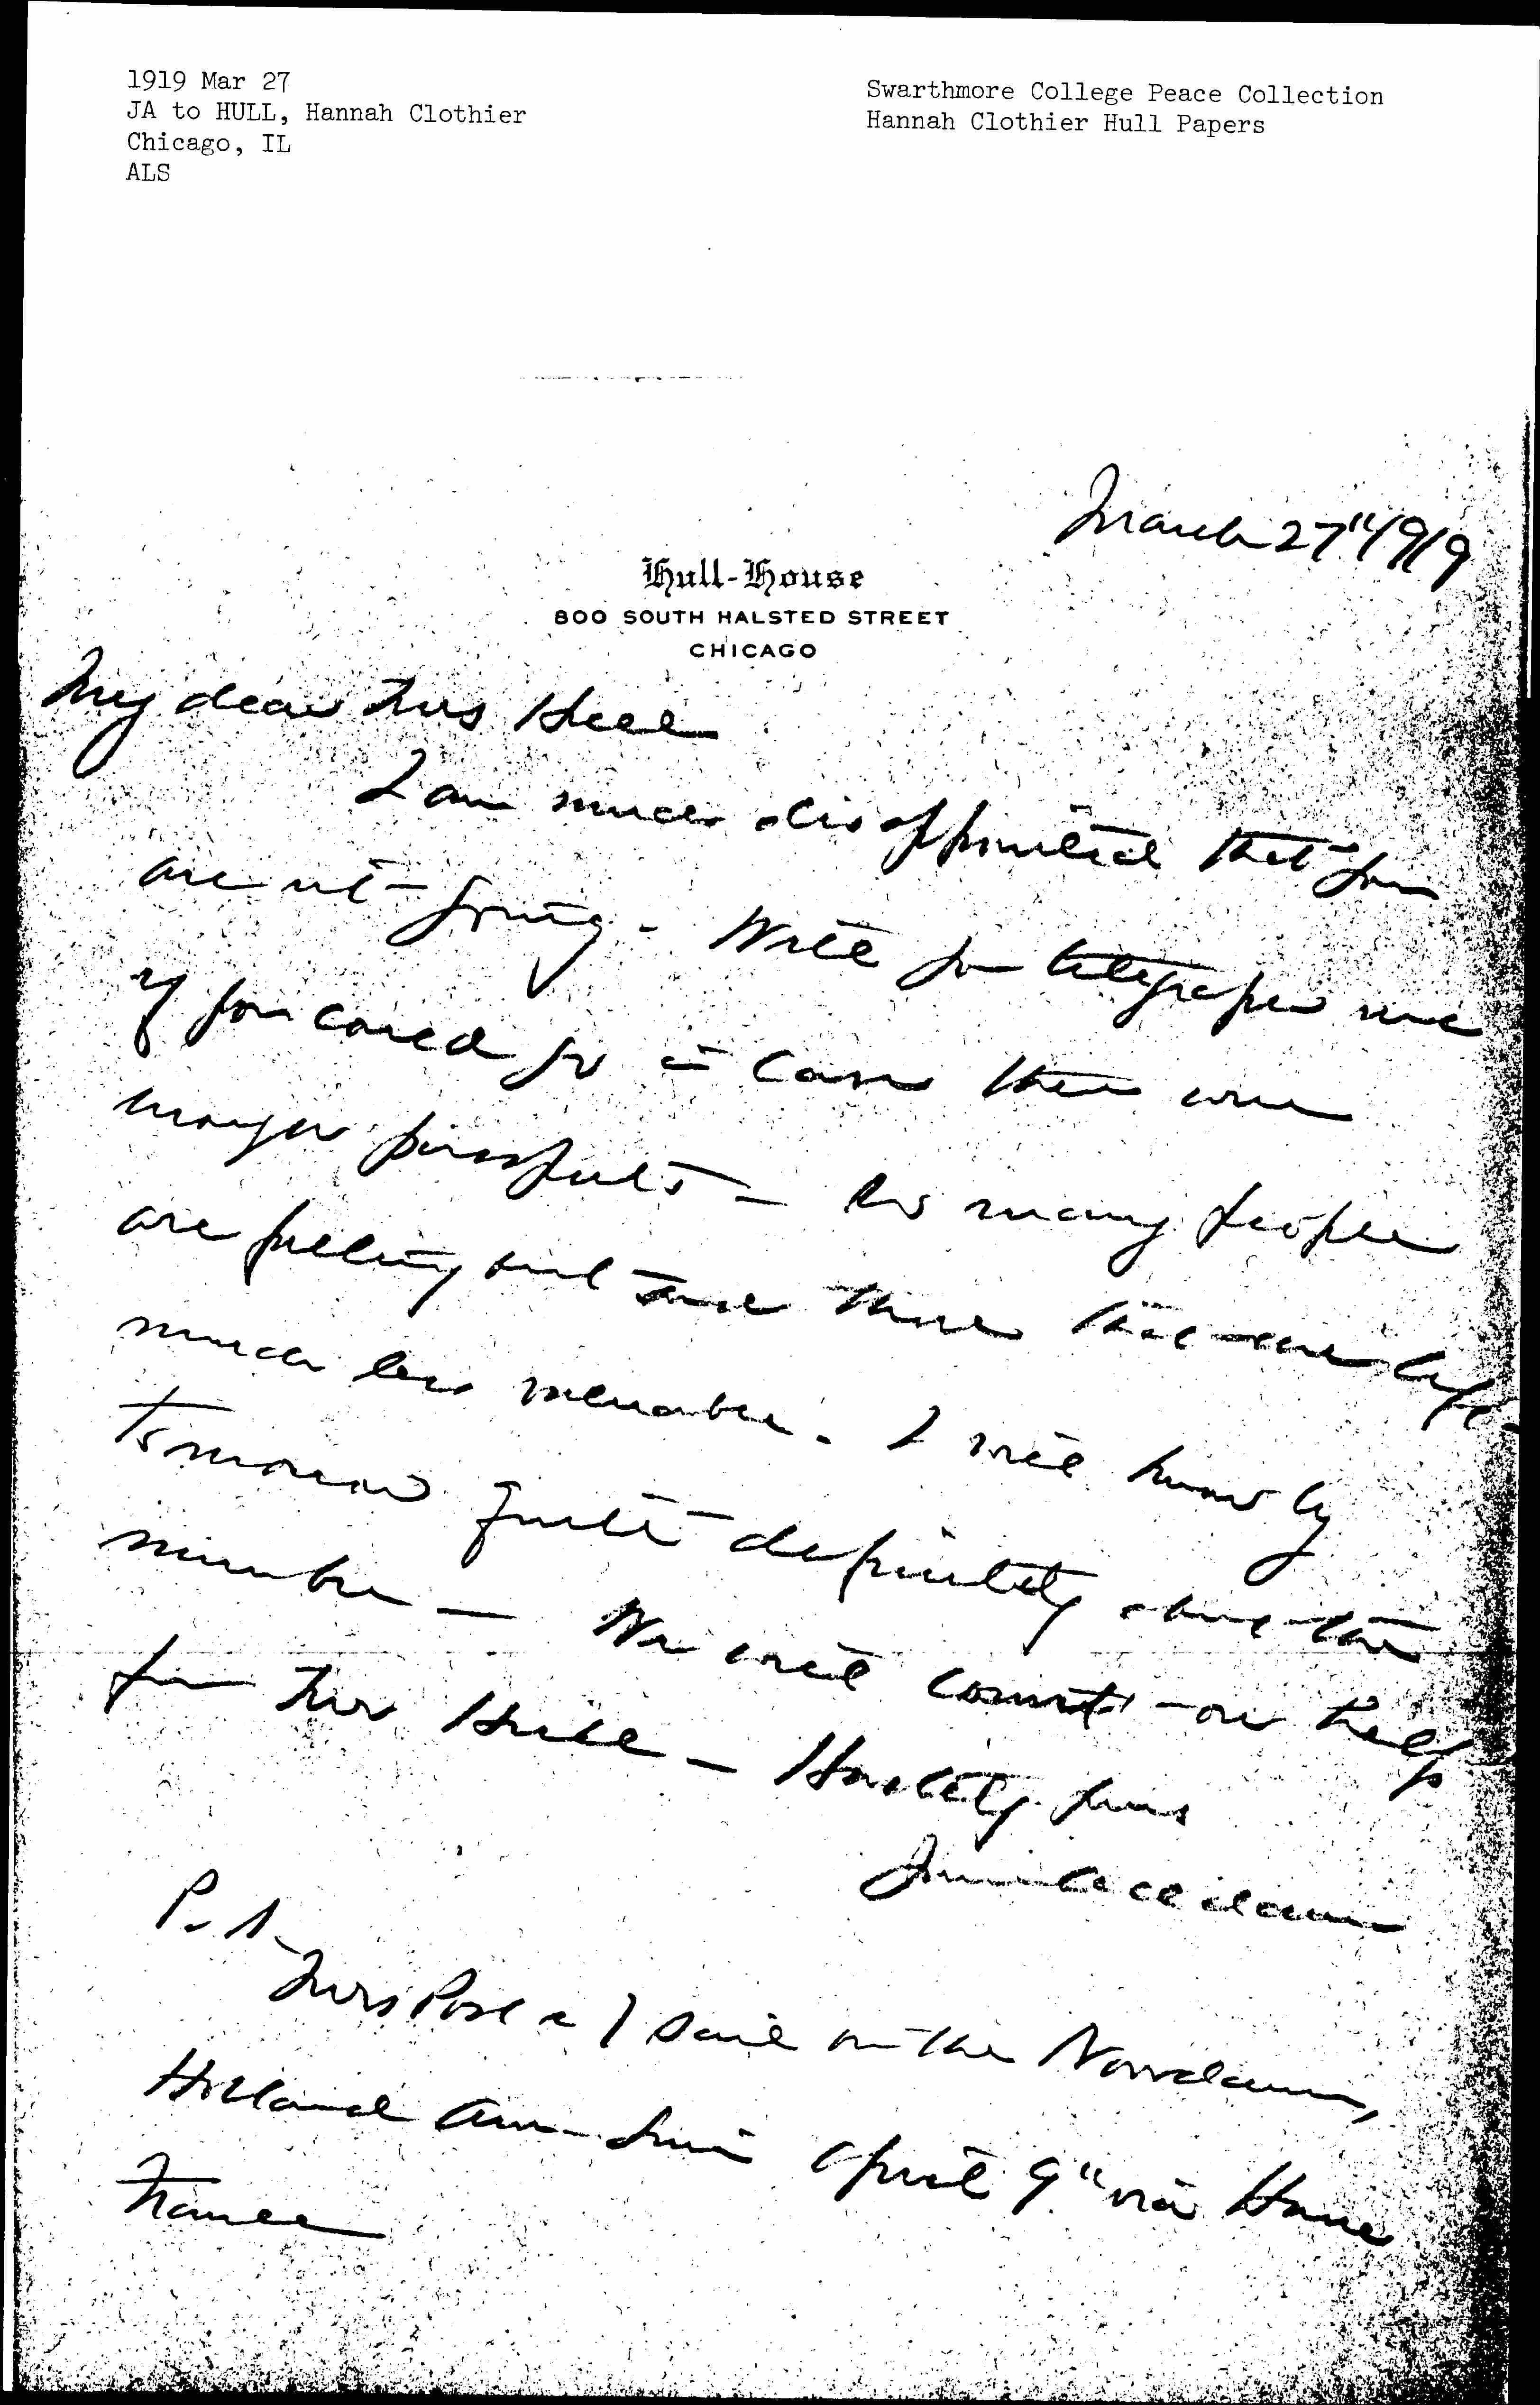 1919 Mar 27
JA to HULL, Hannah Clothier
Chicago, IL
ALS
Swarthmore College Peace Collection
Hannah Clothier Hull Papers
March 27" 1919
Hull-House
800 SOUTH HALSTED STREET
CHICAGO
My dear Mrs Hull
I am much disappointed that you
are not going. Will you telegraph me
if you could go in case there were
more passports – So many people
are falling out and those that are left
much less valuable. I will know by
tomorrow quite definitely about the
number – We will count on help
from Mrs Hull – Hastily yours
Jane Addams
P. S.
Mrs Post & I sail on the Noordam,
Holland Am. Line April 9" via Havre
France